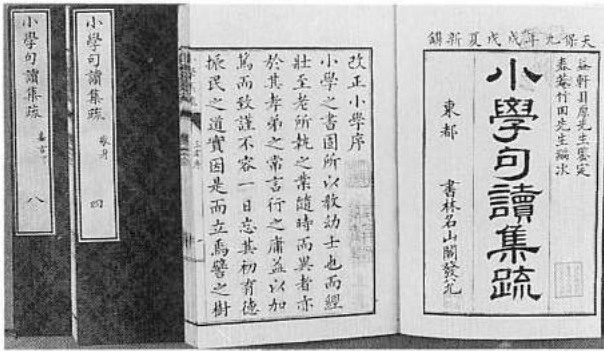 天保九年戊戌夏新鐫
益軒貝原先生鑒定
春菴竹田先生編次
小學句讀集疏
東都　書林名山閣發兌
改正小學序
小學之書固所以敎幼士也而經
壯至老所執之業隨時而異者亦
於其孝弟之常言行之庸益以加
篤而致謹不容一日忘其初有德
振民之道實因是而立焉譬之樹
小學句讀集疏　敬身　四
小學句讀集疏　嘉言　八